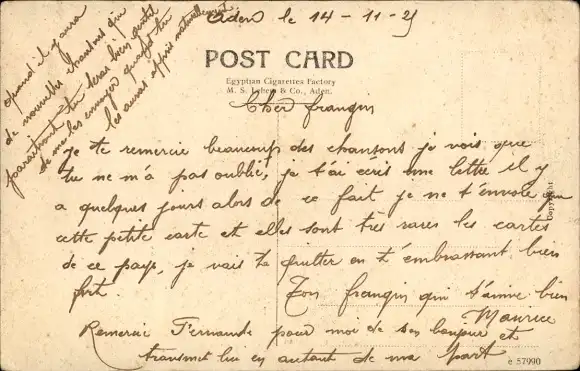 Aden le 14-11-25
POST CARD
Egyptian Cigarettes Factory
M. S. & Co., Aden.
Cher frangin
je te remercie beaucoup des chansons je vois que
tu ne m'a pas oublié, je t'ai écris une lettre il y
a quelques jours alors de ce fait je ne t'envoie que
cette petite carte et elles sont très rares les cartes
de ce pays, je vais te quitter en t'embrassant bien
fort.
Ton frangin qui t'aime bien
Maurice
Remercie Fernande pour moi de son bonjour et
transmet lui en autant de ma part
quand il y aura
de nouvelles chansons qui
paraitront tu seras bien gentil
de me les envoyer quand tu
les auras appris naturellement
Copyright
e 57990